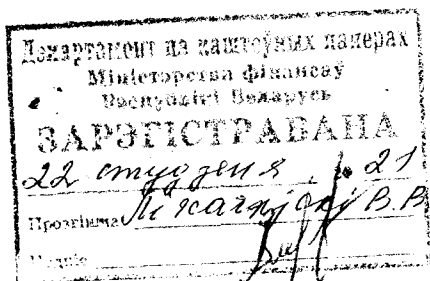 Дэпартамент па каштоўных паперах
Міністэрства фінансаў
Рэспублікі Беларусь
ЗАРЭГІСТРАВАНА
22 студзеня 21
Прозвішча В.В
Подпіс